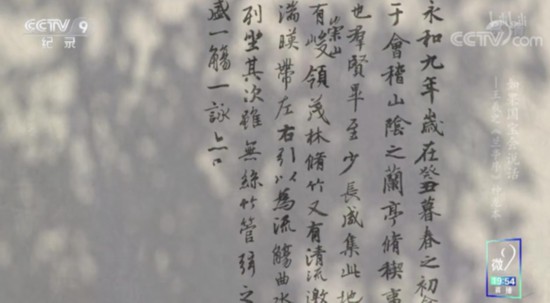 CCTV 9
纪录
bilibili
CCTV.com
永和九年歲在癸丑暮春之初
于會稽山陰之蘭亭脩稧事
也羣賢畢至少長咸集此地
有崇山峻領茂林脩竹又有清流激
湍暎帶左右引以為流觴曲水
列坐其次雖無絲竹管弦之
盛一觴一詠
如果国宝会说话
微9